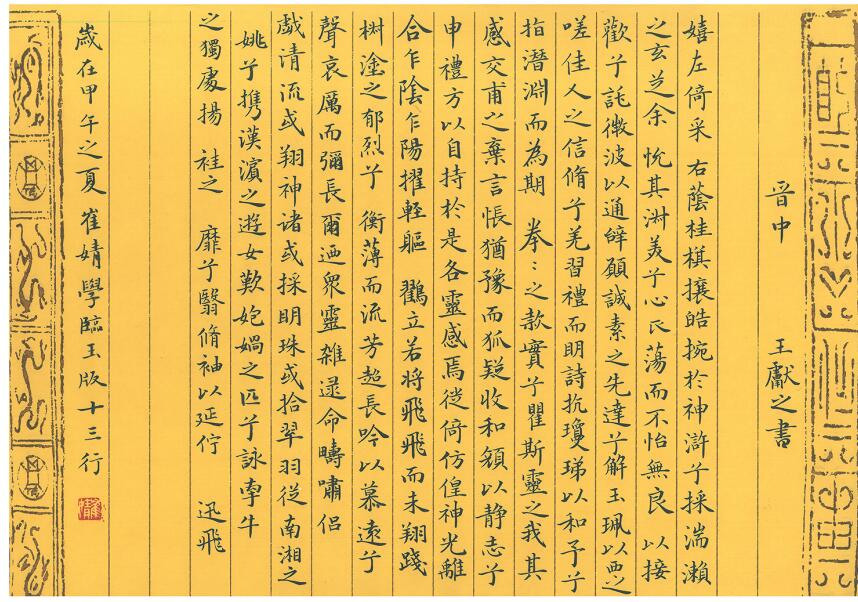 晋中 王獻之書
嬉左倚采 右蔭桂棋攘皓捥於神滸兮採湍瀬
之玄芝余 恱其淋美兮心氏蕩而不怡無良 以接
歡兮託微波以通辭願誠素之先達兮解玉珮以要之
嗟佳人之信脩兮羌習禮而明詩抗瓊珶以和予兮
指潛淵而為期 拳〻之款實兮瞿斯靈之我其
感交甫之棄言悵猶豫而狐疑收和頟以静志兮
申禮方以自持於是各靈感焉徙倚仿偟神光離
合乍陰乍陽擢軽軀 鸖立若將飛飛而未翔踐
樹塗之郁烈兮 衡薄而流芳超長吟以慕遠兮
聲哀厲而彌長爾迺衆靈雜遝命疇嘯侣
戱清流或翔神渚或採眀珠或拾翠羽従南湘之
姚兮携漢濵之遊女歎匏媧之匹兮詠牽牛
之獨處揚 袿之 靡兮翳脩袖以延佇 迅飛
嵗在甲午之夏崔婧學臨玉版十三行